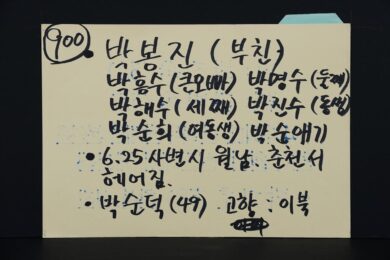 900
• 박봉진 (부친)
박흥수 (큰오빠) 박영수 (둘째)
박해수 (세째) 박진수 (동생)
박순희 (여동생) 박숨애기
• 6.25 사변시 월남. 춘천서
헤어짐.
• 박순덕 (49) 고향 : 이북